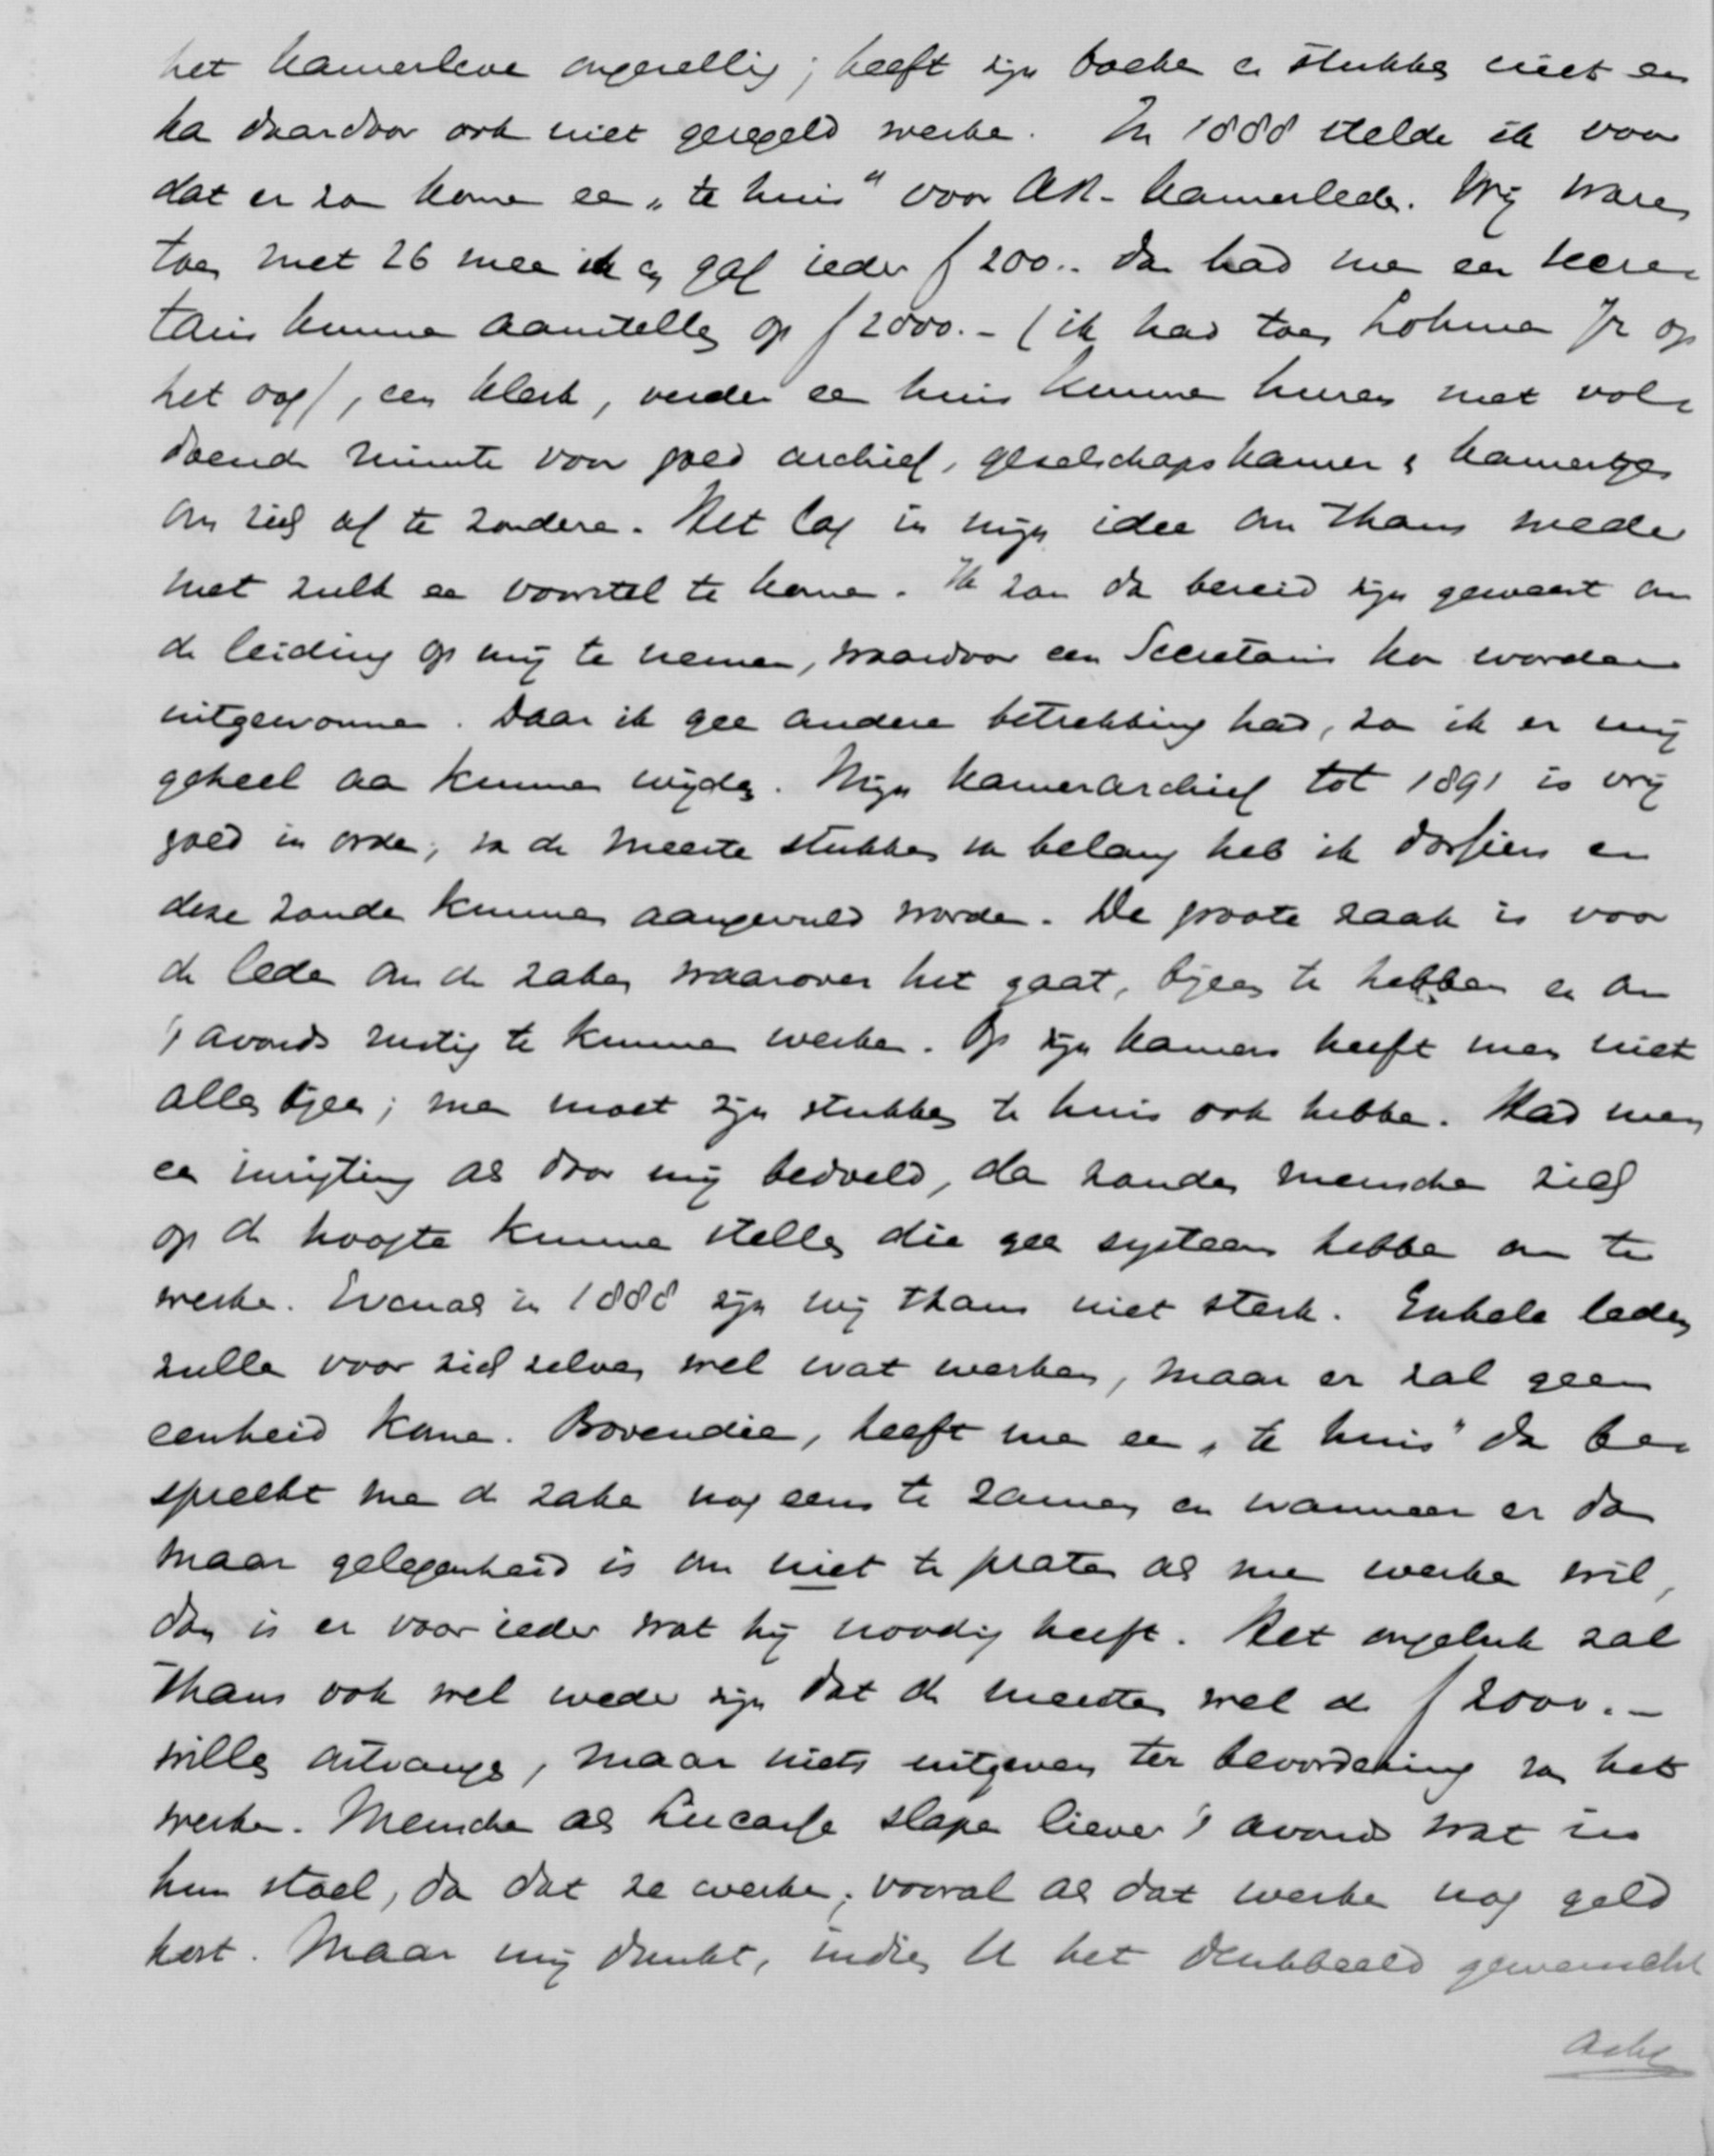 het kamerleven ongezellig; heeft zijn boeken en stukken niet en
kan daardoor ook niet geregeld werken. In 1888 stelde ik voor
dat er zou komen een „te huis" voor AR-kamerleden. Wij waren
toen met 26 man en gaf ieder f 200.. dan had men een secre-
taris kunnen aanstellen op f 2000.- (ik had toen Lohman Jr op
het oog), een klerk, verder een huis kunnen huren met vol-
doende ruimte voor goed archief, gezelschapskamer & kamertjes
om zich af te zonderen. Het lag in mijn idee om thans weder
met zulk een voorstel te komen. Ik zou dan bereid zijn geweest om
de leiding op mij te nemen, waardoor een Secretaris kon worden
uitgewonnen. Daar ik geen andere betrekking had, zou ik er mij
geheel aan kunnen wijden. Mijn kamerarchief tot 1891 is vrij
goed in orde; van de meeste stukken van belang heb ik dossiers en
deze zouden kunnen aangevuld worden. De groote zaak is voor
de leden om de zaken waarover het gaat, bijeen te hebben en om
's avonds rustig te kunnen werken. Op zijn kamers heeft men niet
alles bijeen; men moet zijn stukken te huis ook hebben. Had men
een inrigting als door mij bedoeld, dan zouden menschen zich
op de hoogte kunnen stellen die geen systeem hebben om te
werken. Evenals in 1888 zijn wij thans niet sterk. Enkele leden
zullen voor zich zelven wel wat werken, maar er zal geen
eenheid komen. Bovendien, heeft men een „te huis" dan be-
spreekt men de zaken nog eens te zamen en wanneer er dan
maar gelegenheid is om niet te praten als men werken wil,
dan is er voor ieder wat hij noodig heeft. Het ongeluk zal
thans ook wel weder zijn dat de meesten wel de f 2000.-
willen ontvangen, maar niets uitgeven ter bevordering van het
werken. Menschen als Lucasse slapen liever 's avonds wat in
hun stoel, dan dat ze werken, vooral als dat werken nog geld
kost. Maar mij dunkt, indien U het denkbeeld gewenscht